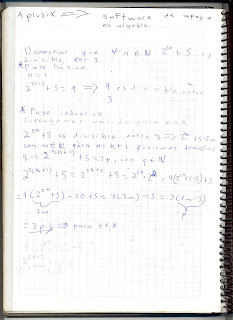 Aplusix ⟹ software de apoyo
en álgebra.
1) Demostrar que ∀ n ∈ ℕ 2²ⁿ + 5 es
divisible por 3
* Paso básico
n = 1
2²⁽¹⁾ + 5 = 9 ⟹ 9 es divisible entre
3
* Paso inductivo
Supongamos válido para k = n
2²ᵏ + 5 es divisible entre 3 ⟹ 2²ᵏ + 5 = 3m
con m ∈ ℕ, para n = k+1 queremos
que 2²⁽ᵏ⁺¹⁾ + 5 = 3p, con p ∈ ℕ
2²⁽ᵏ⁺¹⁾ + 5 = 2²ᵏ⁺² + 5 = 2²ᵏ · 2² = 4(2²ᵏ + 5 - 5) + 5
= 4(2²ᵏ + 5) - 20 + 5 = 4(3m) - 15 = 3(4m - 5)
3m p
= 3p ⟹ para n ∈ ℕ